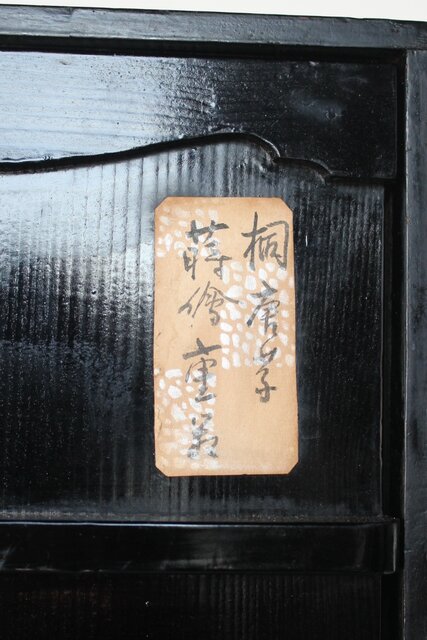 桐唐草
蒔繪重箱